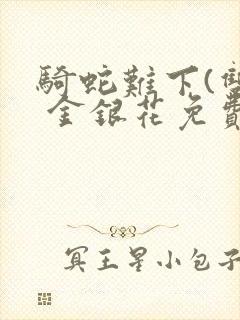 騎蛇難下(雙
金銀花免費
冥王星小包子